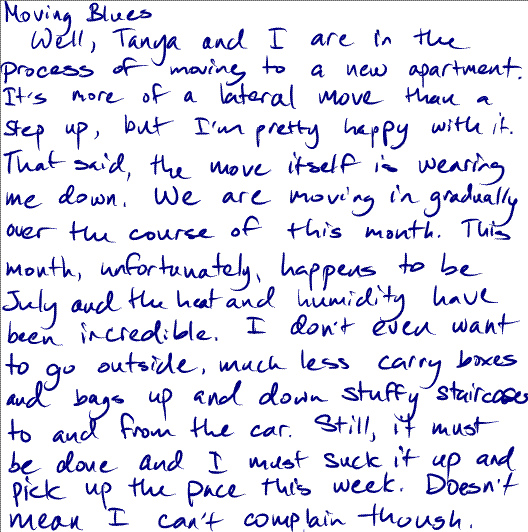 Moving Blues
Well, Tanya and I are in the
process of moving to a new apartment.
It's more of a lateral move than a
step up, but I'm pretty happy with it.
That said, the move itself is wearing
me down. We are moving in gradually
over the course of this month. This
month, unfortunately, happens to be
July and the heat and humidity have
been incredible. I don't even want
to go outside, much less carry boxes
and bags up and down stuffy staircases
to and from the car. Still, it must
be done and I must suck it up and
pick up the pace this week. Doesn't
mean I can't complain though.